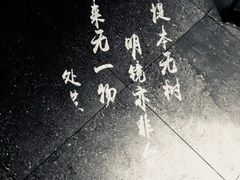 提本无树
明镜亦非
来无一物
处